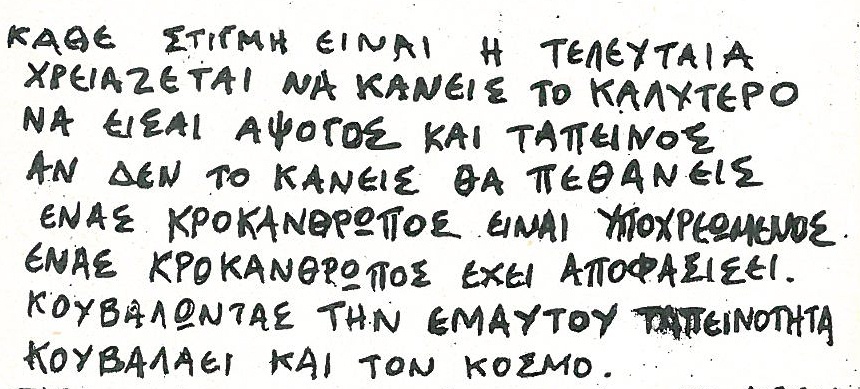 ΚΑΘΕ ΣΤΙΓΜΗ ΕΙΝΑΙ Η ΤΕΛΕΥΤΑΙΑ
ΧΡΕΙΑΖΕΤΑΙ ΝΑ ΚΑΝΕΙΣ ΤΟ ΚΑΛΥΤΕΡΟ
ΝΑ ΕΙΣΑΙ ΑΨΟΓΟΣ ΚΑΙ ΤΑΠΕΙΝΟΣ
ΑΝ ΔΕΝ ΤΟ ΚΑΝΕΙΣ ΘΑ ΠΕΘΑΝΕΙΣ
ΕΝΑΣ ΚΡΟΚΑΝΘΡΩΠΟΣ ΕΙΝΑΙ ΥΠΟΧΡΕΩΜΕΝΟΣ.
ΕΝΑΣ ΚΡΟΚΑΝΘΡΩΠΟΣ ΕΧΕΙ ΑΠΟΦΑΣΙΣΕΙ.
ΚΟΥΒΑΛΩΝΤΑΣ ΤΗΝ ΕΜΑΥΤΟΥ ΤΑΠΕΙΝΟΤΗΤΑ
ΚΟΥΒΑΛΑΕΙ ΚΑΙ ΤΟΝ ΚΟΣΜΟ.